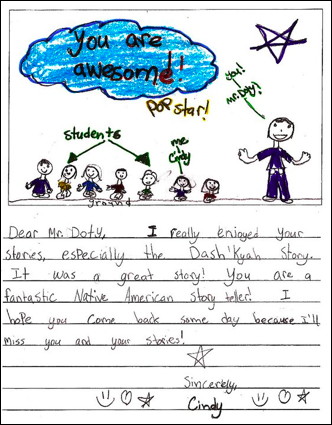 You are
awesome!!
POP star!
You!
Mr. Doty!
students
me
Cindy
ground
Dear Mr. Doty, I really enjoyed your
stories, especially the Dash'Kyah Story.
It was a great story! You are a
fantastic Native American story teller! I
hope you come back some day because I'll
miss you and your stories!
Sincerely,
Cindy